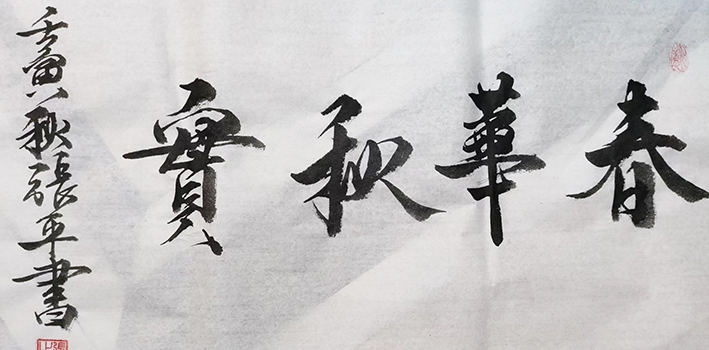 春華秋實
壬寅秋張平書